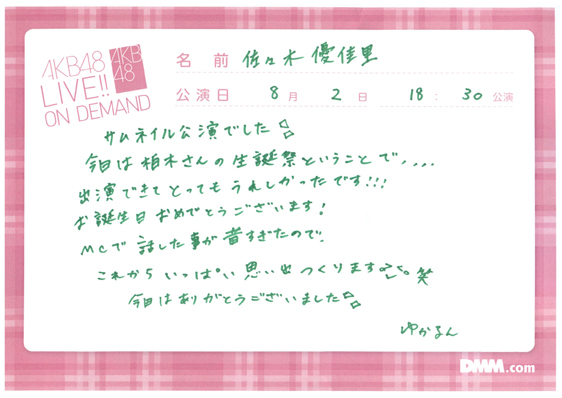 AKB48
LIVE!!
ON DEMAND
AKB
48
名前 佐々木優佳里
公演日 8月2日 18:30公演
サムネイル公演でした
今日は柏木さんの生誕祭ということで、、、、
出演できてとってもうれしかったです!!!
お誕生日おめでとうございます!
MCで話した事が昔すぎたので、
これからいっぱい思い出つくります 笑
今日はありがとうございました
ゆかるん
DMM.com